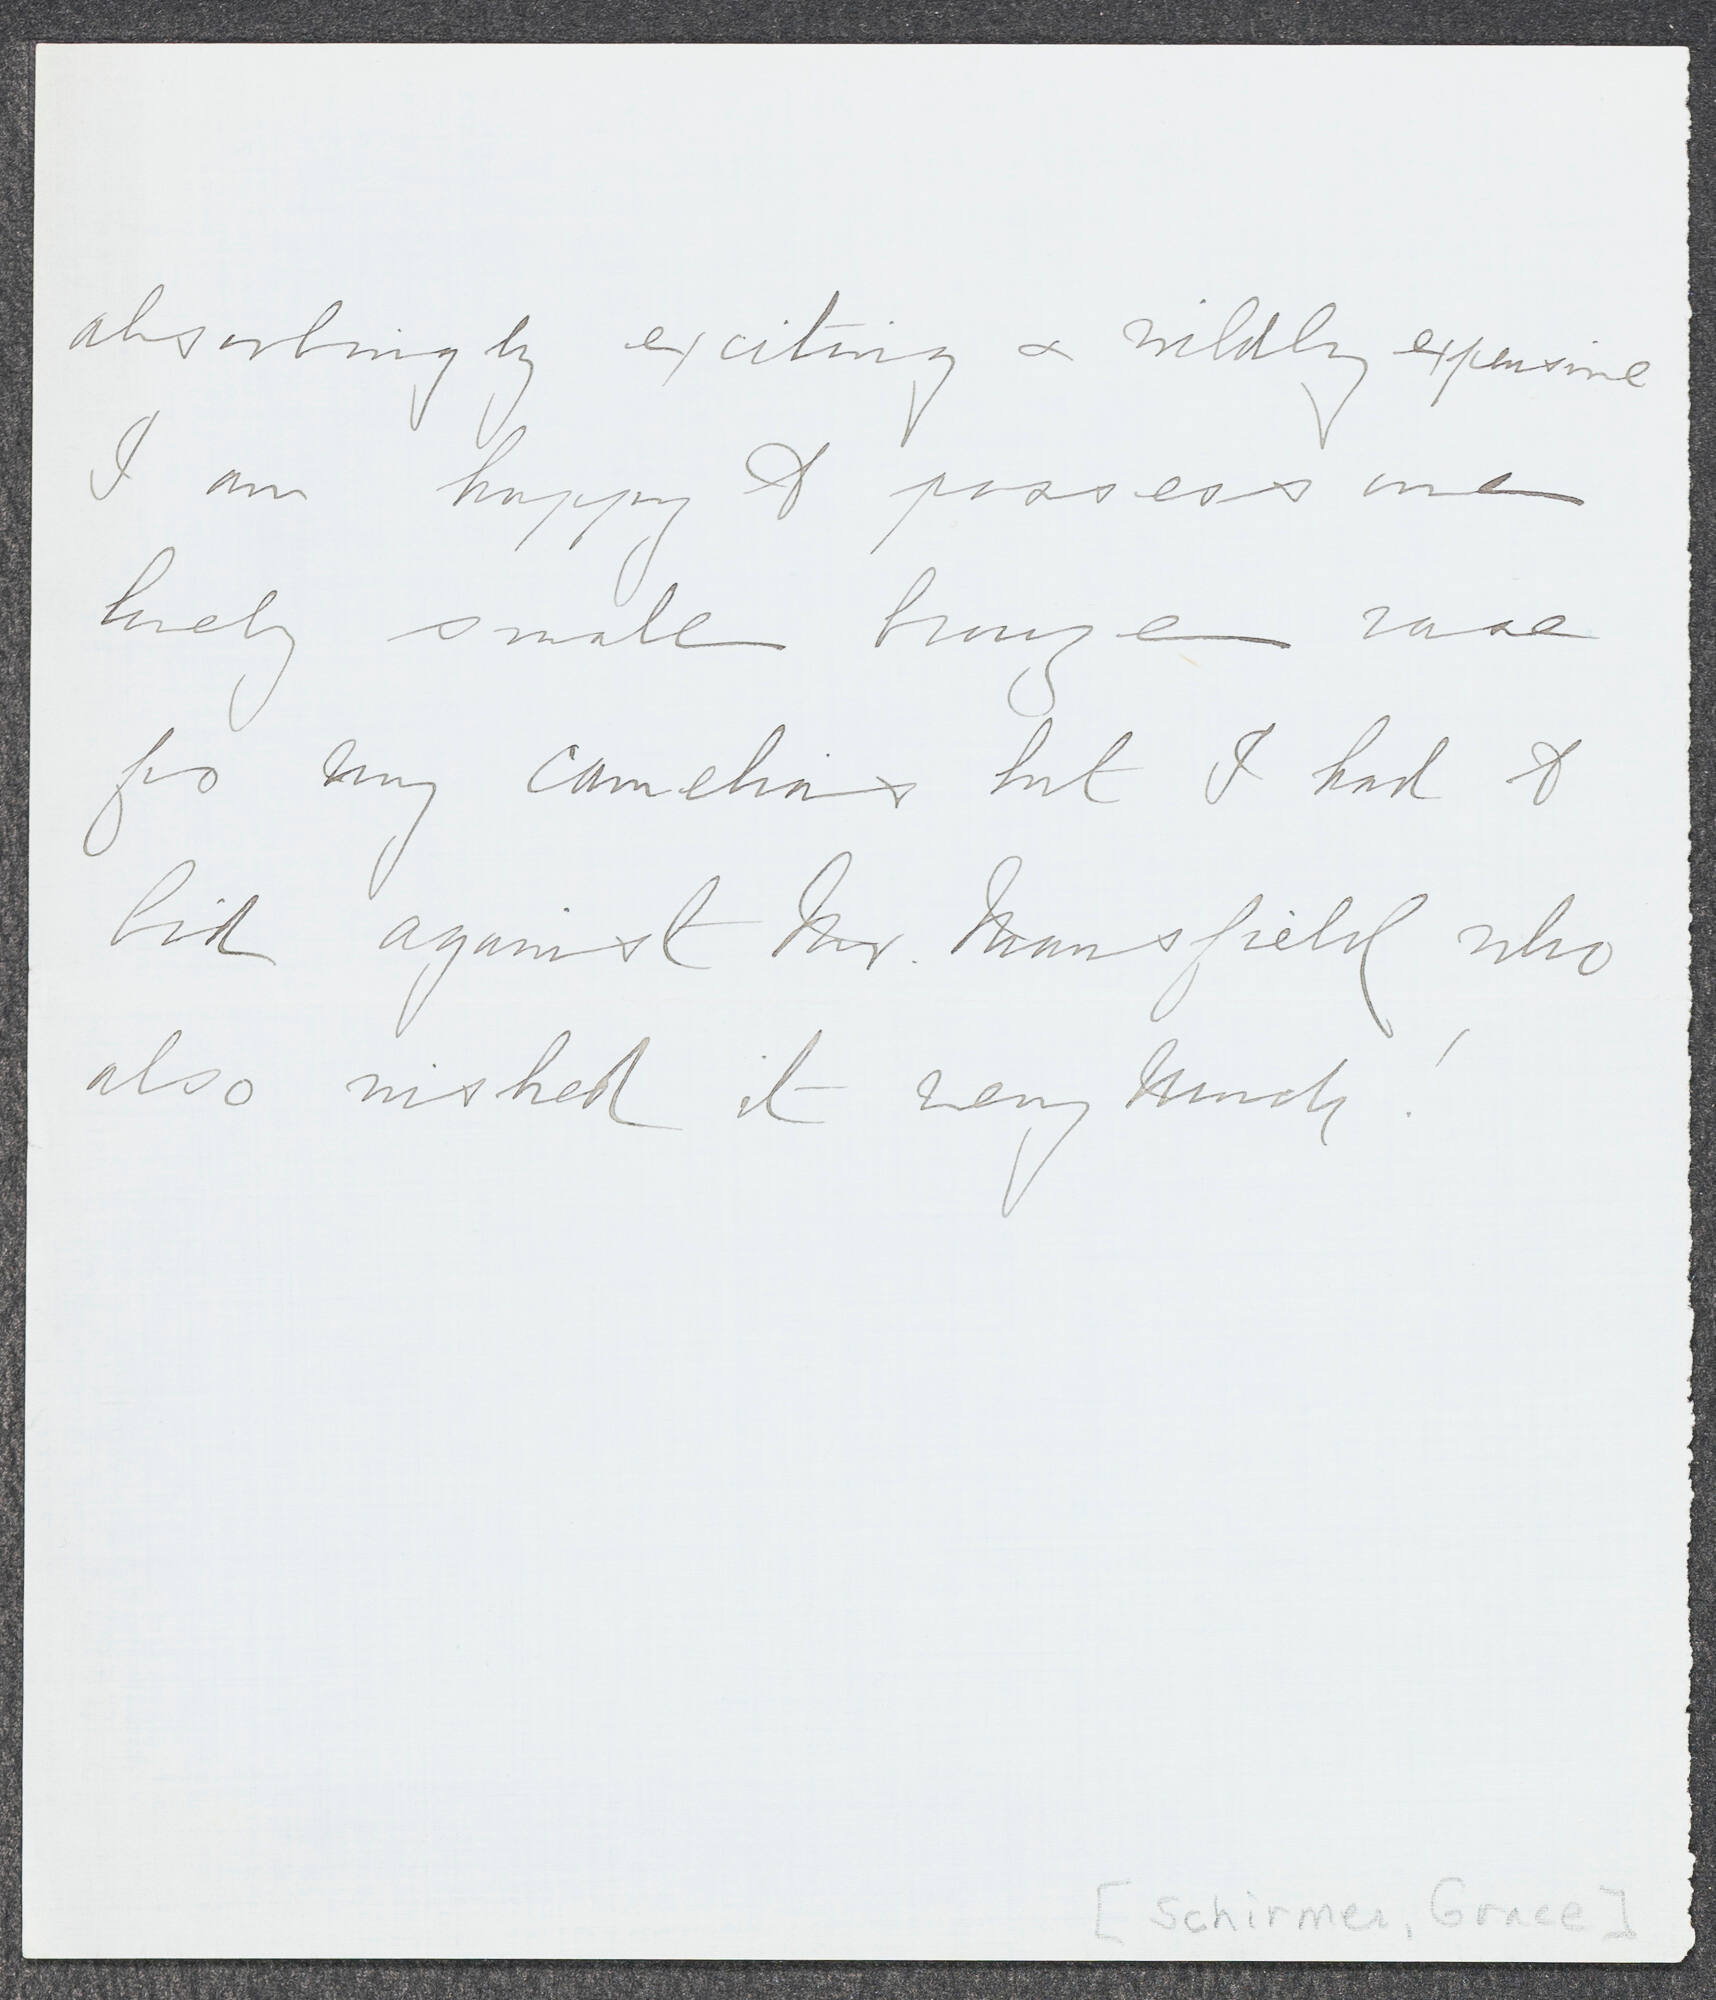 absorbingly exciting & wildly expensive
I am happy to possess one
lovely small bronze vase
for my camelias but I had to
bid against Mr. Mansfield who
also wished it very much!
[Schirmer, Grace]